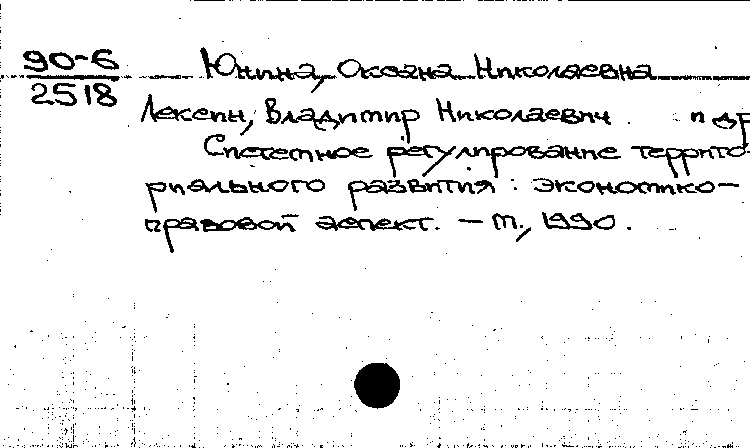 90-6
2518
Юнина, Оксана Николаевна
Лексин, Владимир Николаевич и др
Системное регулирование террито-
риального развития: экономико-
правовой аспект. – М., 1990.